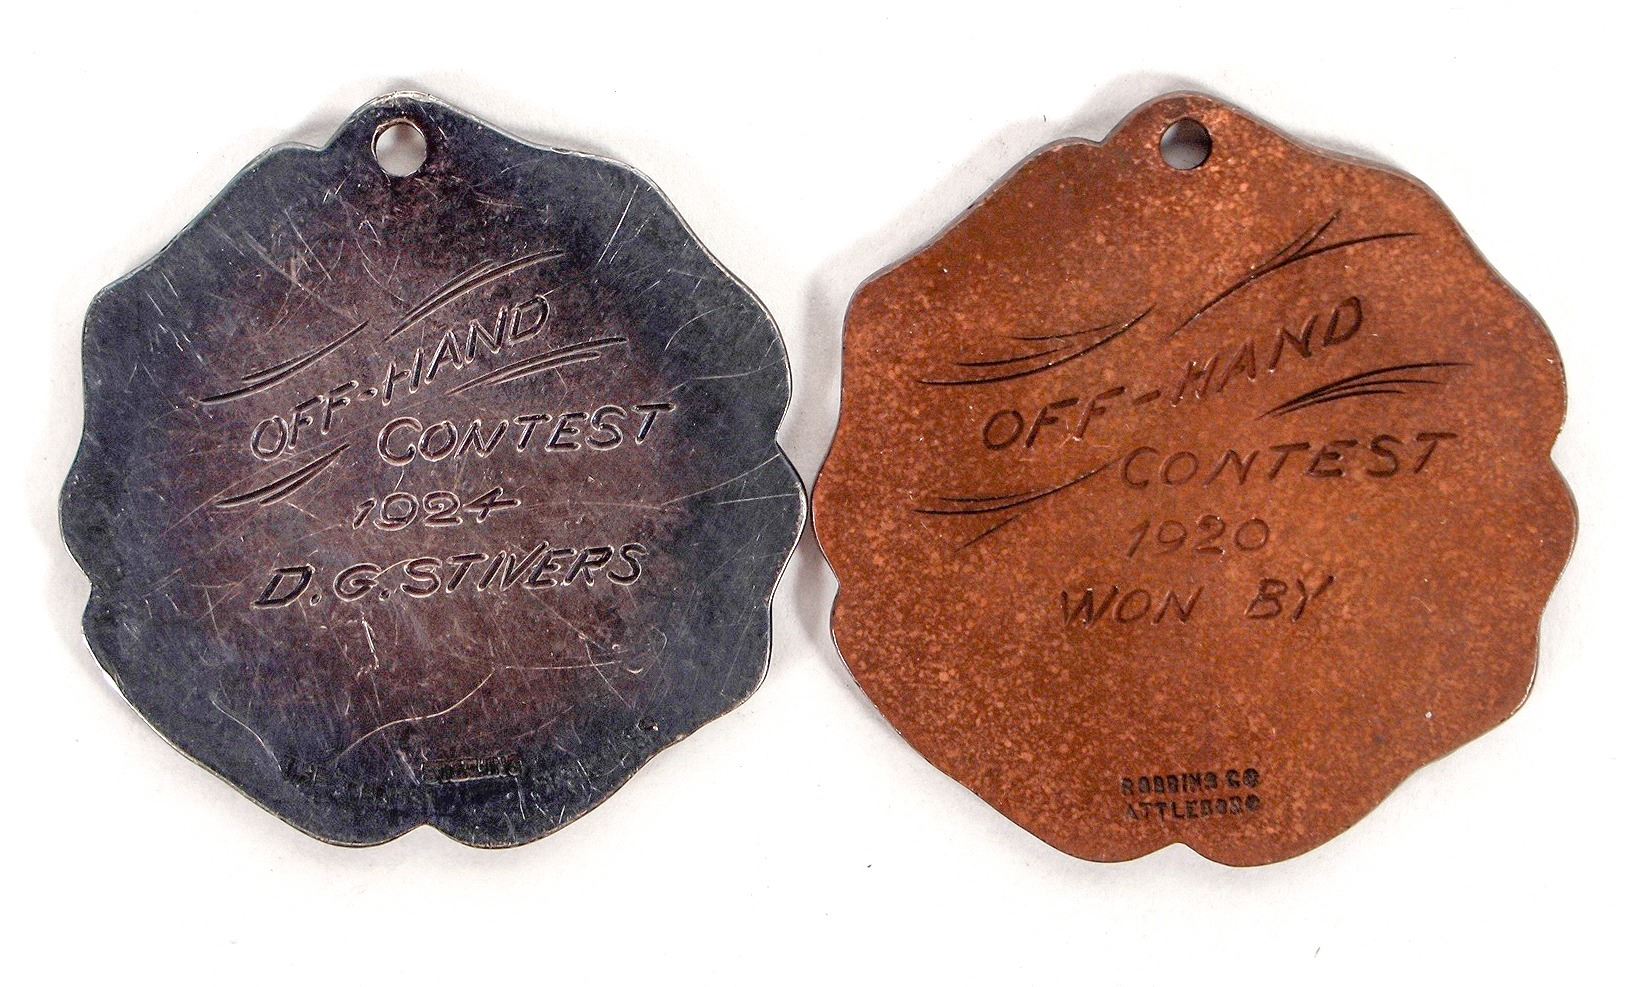 OFF-HAND
CONTEST
1924
D.G. STIVERS
STERLING
OFF-HAND
CONTEST
1920
WON BY
ROBBINS CO
ATTLEBORO